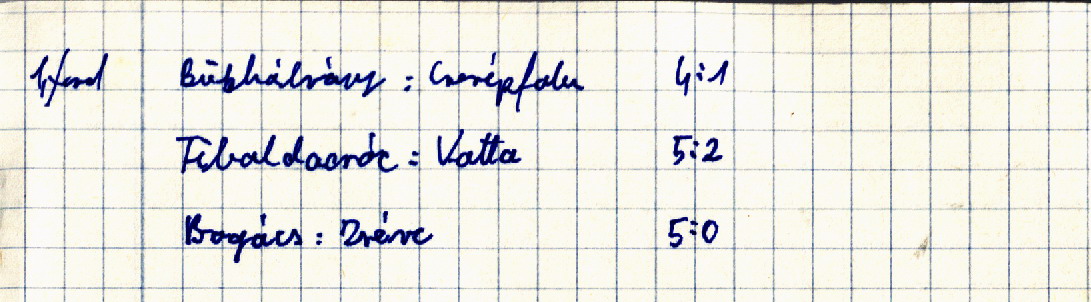 4/ford Bükkábrány : Cserépfalu 4:1
Tibolddaróc : Vatta 5:2
Bogács : Szérve 5:0